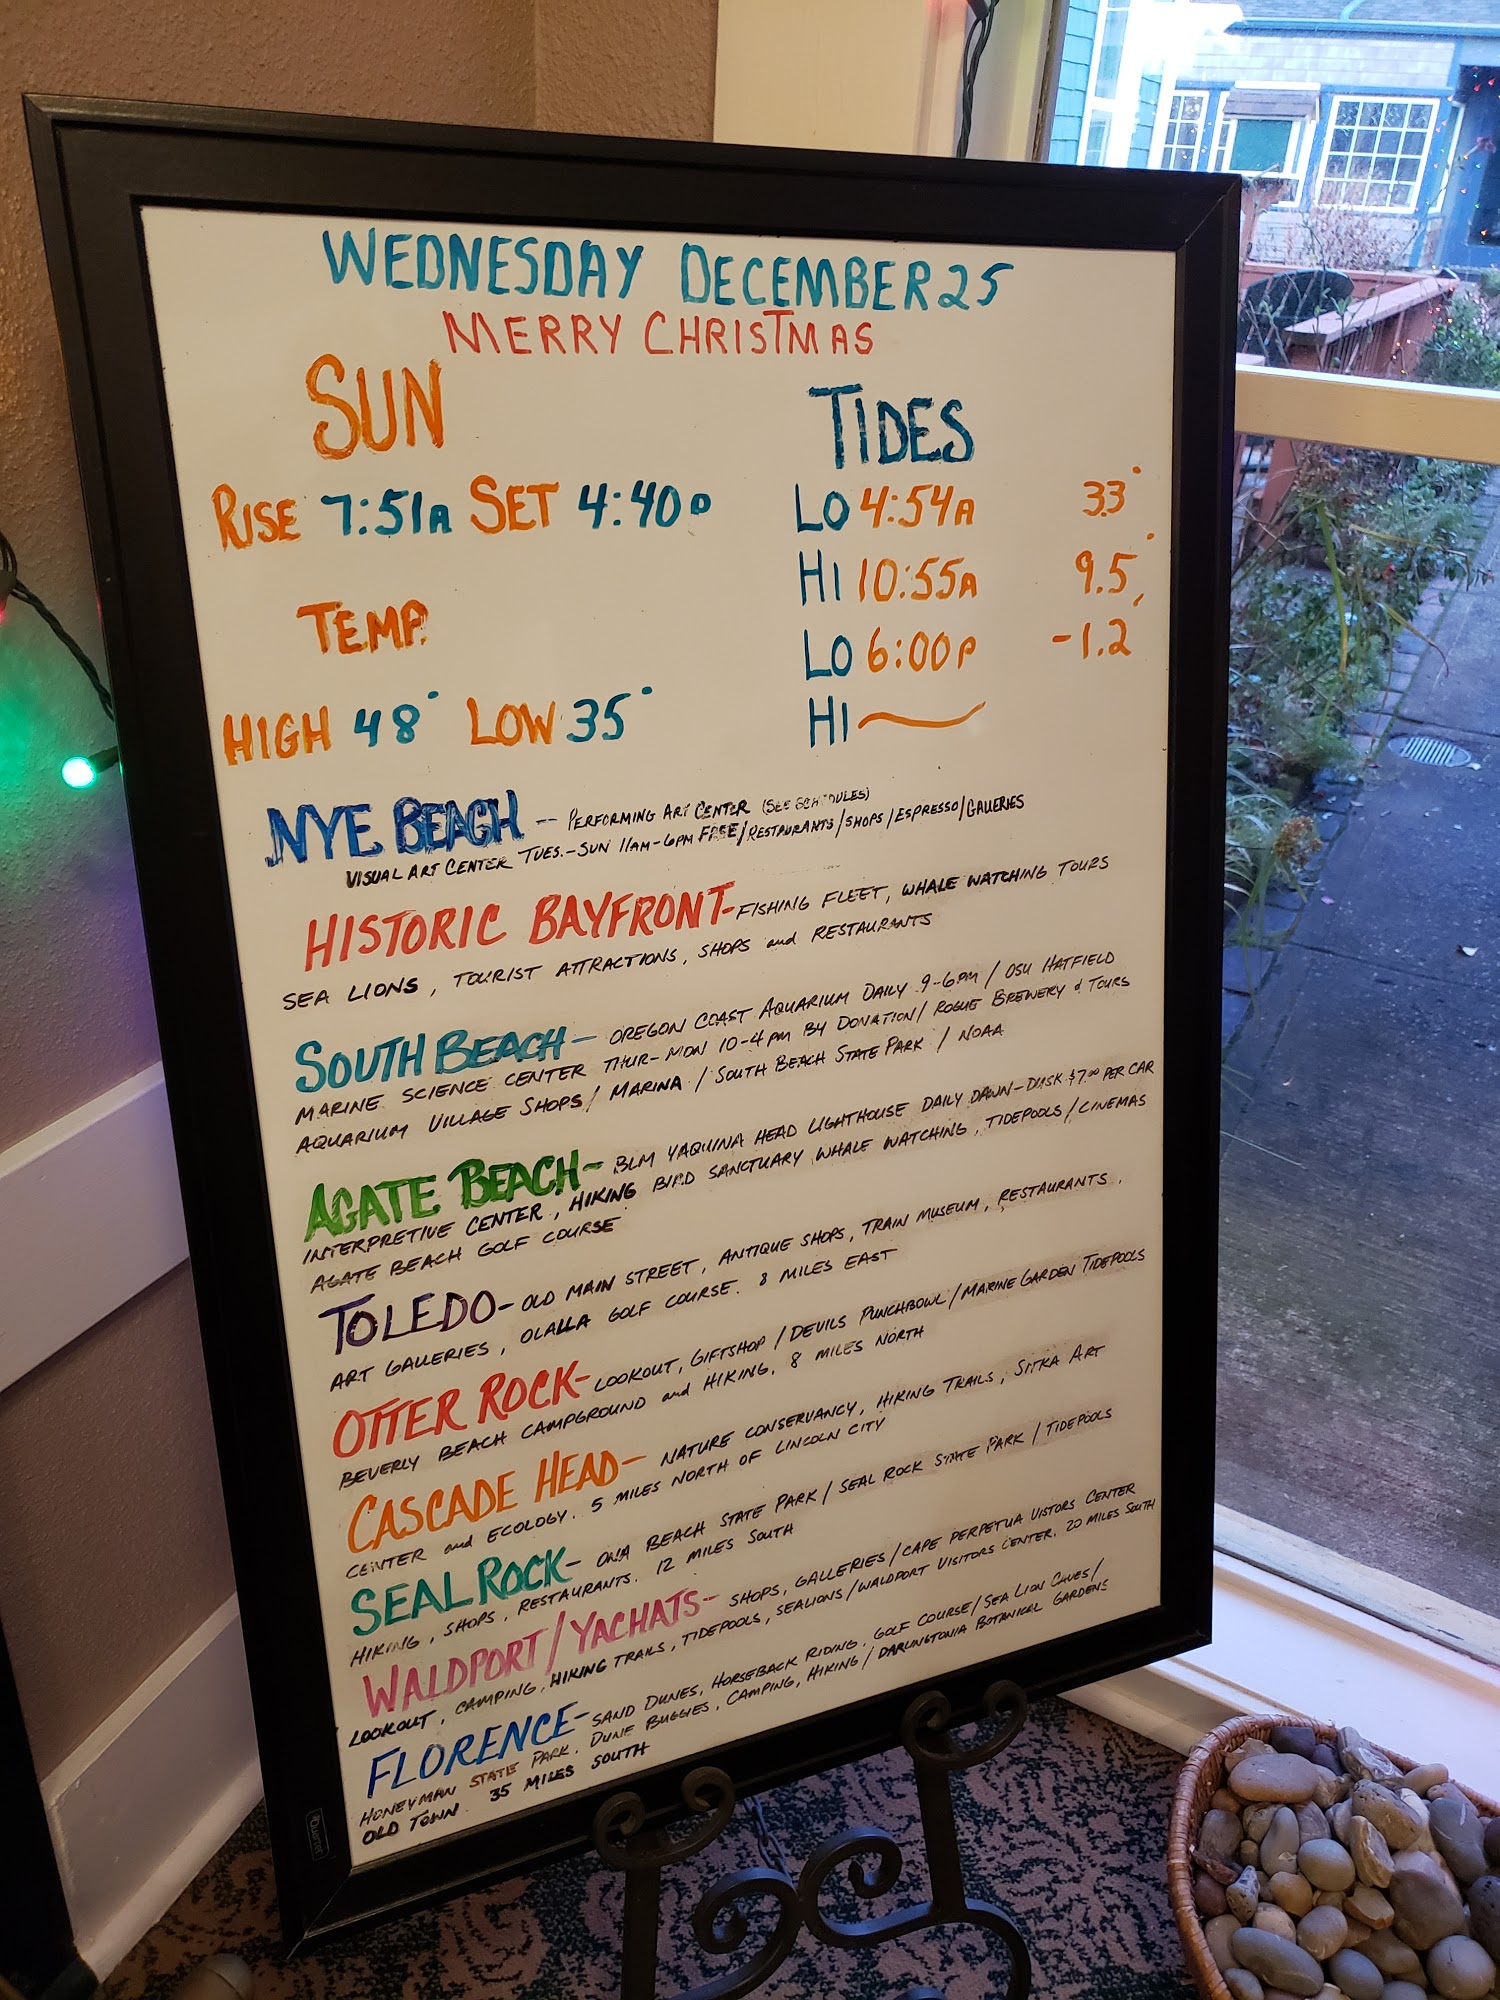 WEDNESDAY DECEMBER 25
MERRY CHRISTMAS
SUN
RISE 7:51A SET 4:40P
TEMP.
HIGH 48° LOW 35°
TIDES
LO 4:54A 3.3'
HI 10:55A 9.5'
LO 6:00P -1.2'
HI
NYE BEACH -- PERFORMING ART CENTER (SEE SCHEDULES)
VISUAL ART CENTER TUES.-SUN 11AM-6PM FREE/RESTAURANTS/SHOPS/ESPRESSO/GALLERIES
HISTORIC BAYFRONT- FISHING FLEET, WHALE WATCHING TOURS
SEA LIONS, TOURIST ATTRACTIONS, SHOPS and RESTAURANTS
SOUTH BEACH- OREGON COAST AQUARIUM DAILY 9-6PM / OSU HATFIELD
MARINE SCIENCE CENTER THUR-MON 10-4pm BY DONATION/ ROGUE BREWERY & TOURS
AQUARIUM VILLAGE SHOPS/ MARINA / SOUTH BEACH STATE PARK / NOAA
AGATE BEACH- BLM YAQUINA HEAD LIGHTHOUSE DAILY DAWN-DUSK $7.00 PER CAR
INTERPRETIVE CENTER, HIKING BIRD SANCTUARY WHALE WATCHING, TIDEPOOLS/CINEMAS
AGATE BEACH GOLF COURSE
TOLEDO- OLD MAIN STREET, ANTIQUE SHOPS, TRAIN MUSEUM, RESTAURANTS,
ART GALLERIES, OLALLA GOLF COURSE. 8 MILES EAST
OTTER ROCK- LOOKOUT, GIFTSHOP / DEVILS PUNCHBOWL / MARINE GARDEN TIDEPOOLS
BEVERLY BEACH CAMPGROUND and HIKING. 8 MILES NORTH
CASCADE HEAD- NATURE CONSERVANCY, HIKING TRAILS, SITKA ART
CENTER and ECOLOGY. 5 MILES NORTH OF LINCOLN CITY
SEAL ROCK- ONA BEACH STATE PARK / SEAL ROCK STATE PARK / TIDEPOOLS
HIKING, SHOPS, RESTAURANTS. 12 MILES SOUTH
WALDPORT/YACHATS- SHOPS, GALLERIES/CAPE PERPETUA VISTORS CENTER
LOOKOUT, CAMPING, HIKING TRAILS, TIDEPOOLS, SEALIONS/WALDPORT VISITORS CENTER. 20 MILES SOUTH
FLORENCE- SAND DUNES, HORSEBACK RIDING, GOLF COURSE/SEA LION CAVES/
HONEYMAN STATE PARK. DUNE BUGGIES, CAMPING, HIKING/DARLINGTONIA BOTANICAL GARDENS
OLD TOWN. 35 MILES SOUTH
Quartet